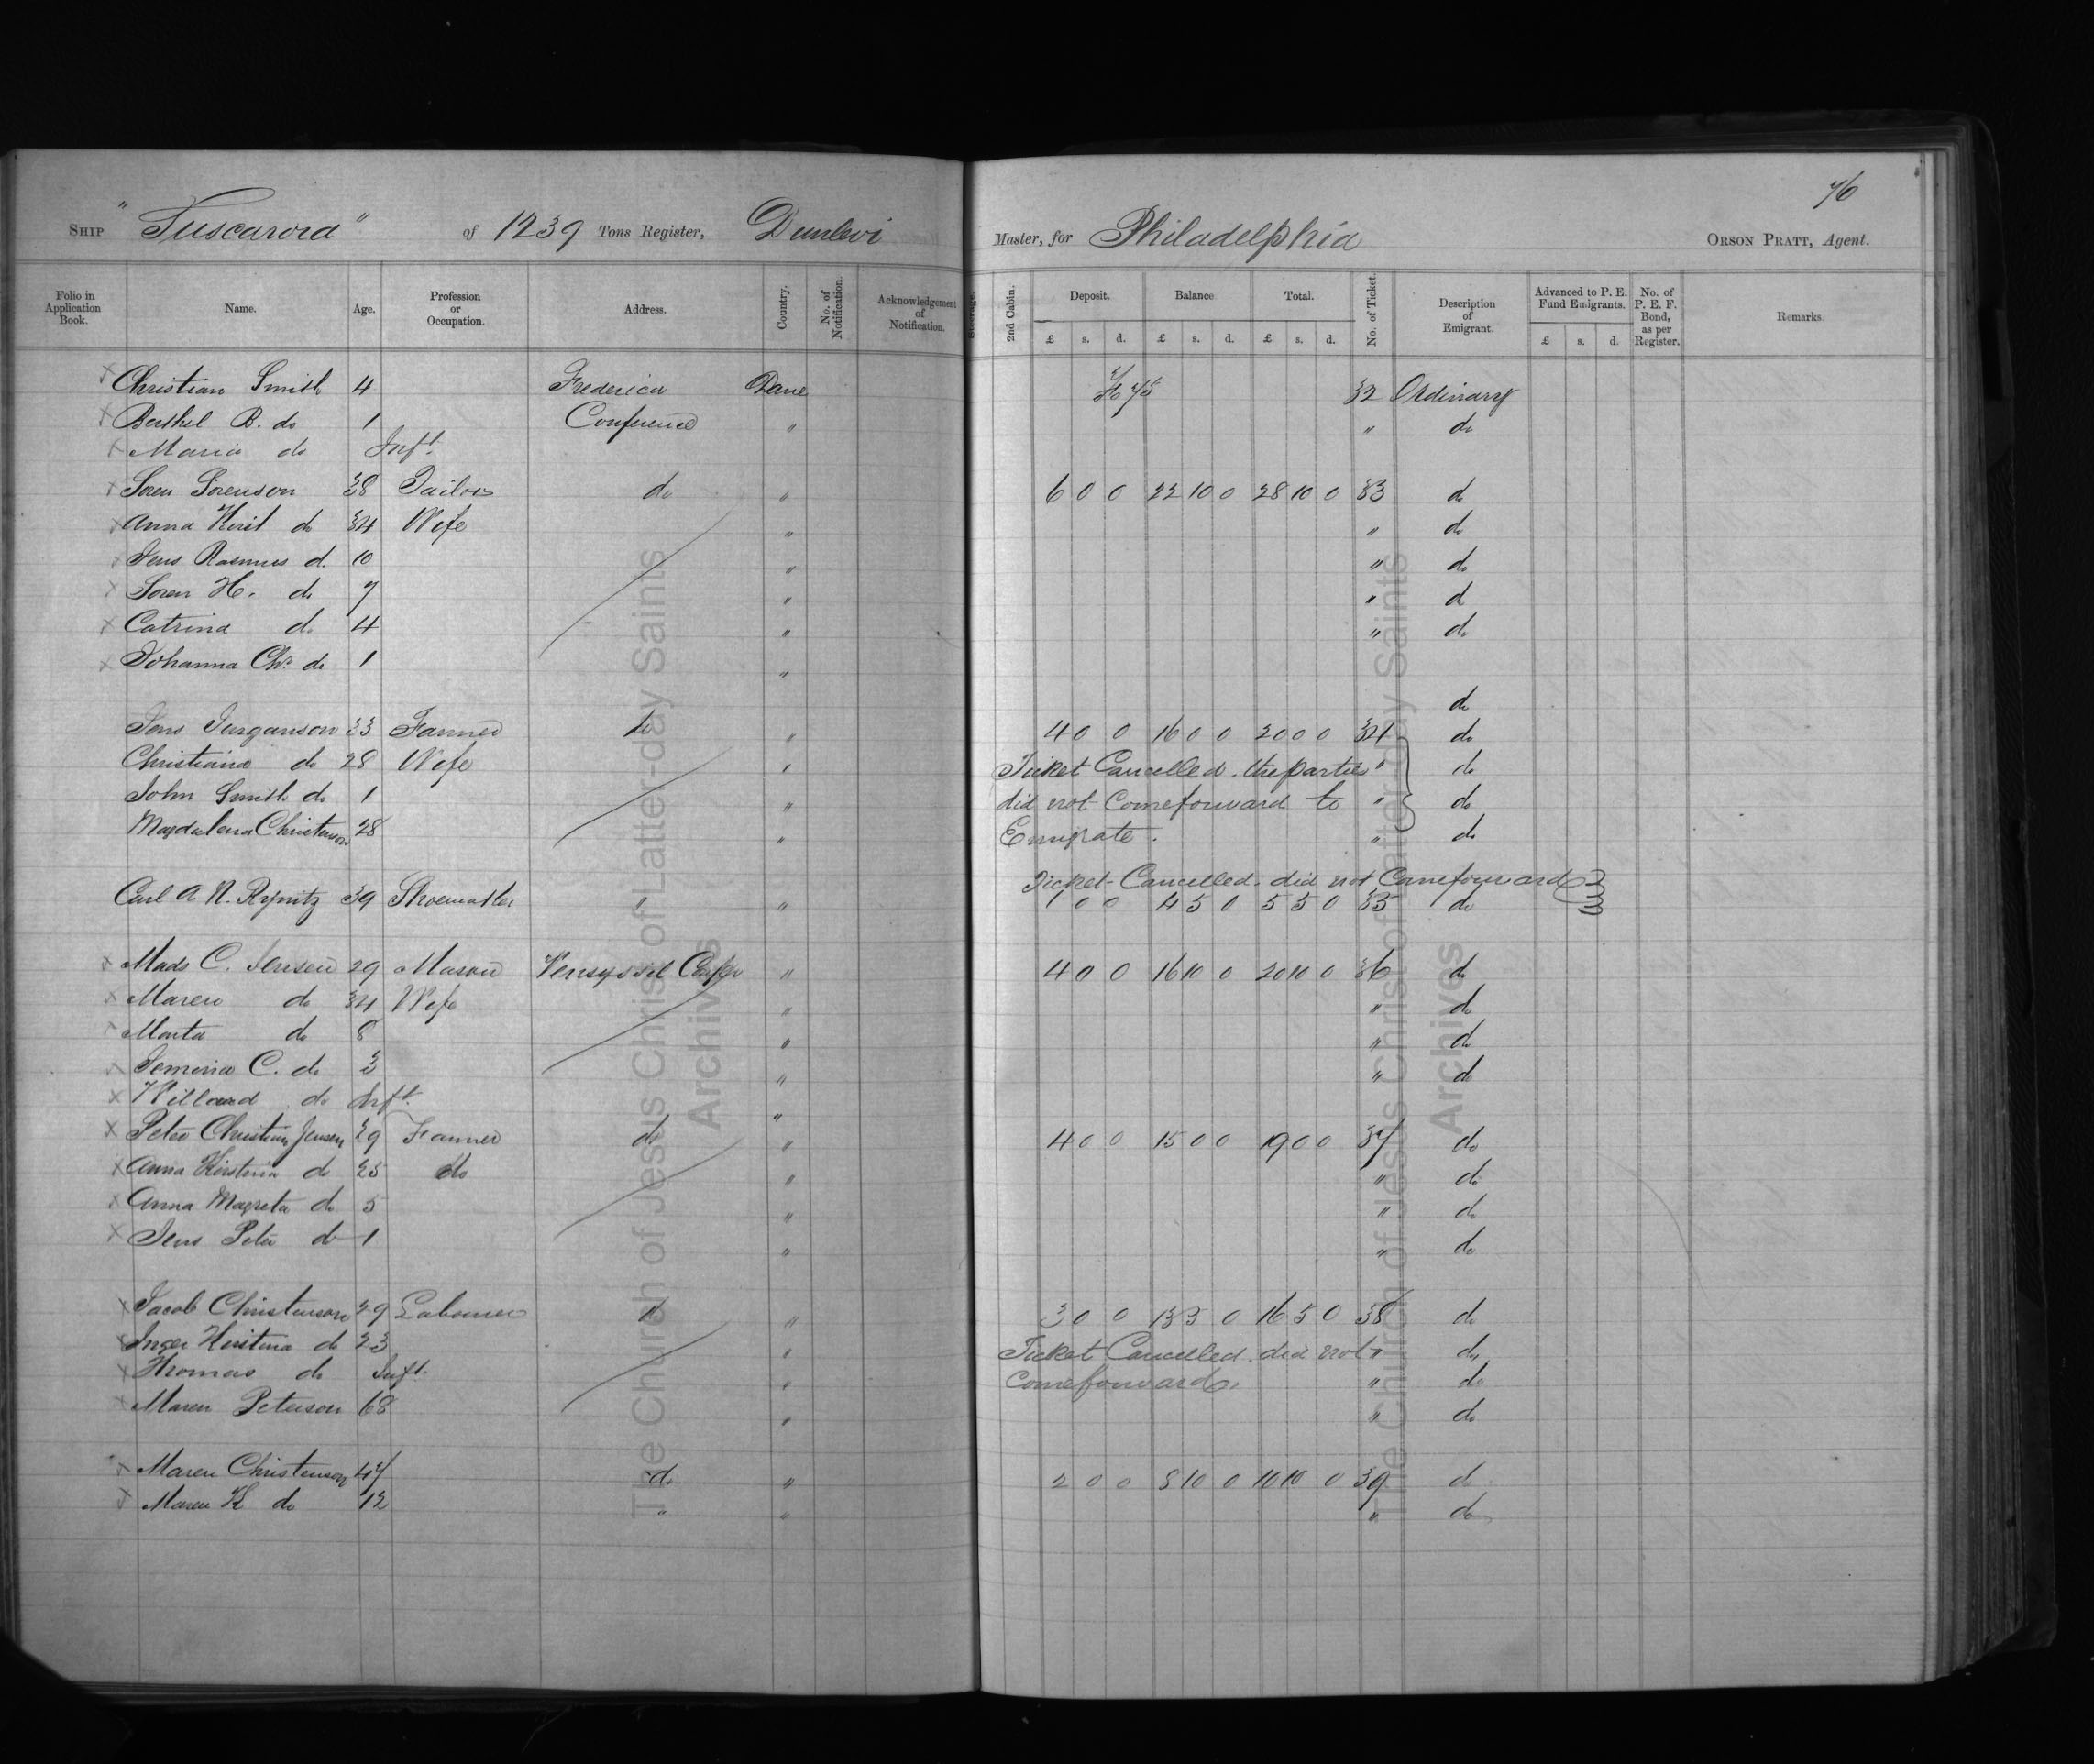 76
SHIP "Tuscarora" of 1239 Tons Register, Dunlevi Master, for Philadelphia ORSON PRATT, Agent.
Folio in Application Book. Name. Age. Profession or Occupation. Address. Country. No. of Notification. Acknowledgement of Notification. Steerage. 2nd Cabin. Deposit. Balance Total. No. of Ticket. Description of Emigrant. Advanced to P. E. Fund Emigrants. No. of P. E. F. Bond, as per Register. Remarks.
£ s. d. £ s. d. £ s. d. £ s. d.
x Christian Smith 4 Frederica Dane 32 Ordinary
x Berthel B. do 1 Conference " " do
x Maria do Inft.
x Soren Sorenson 38 Tailor do " 6 0 0 22 10 0 28 10 0 33 do
x Anna Kirst do 34 Wife " " do
x Jens Rasmus d. 10 " " do
x Soren H. do 7 " " d
x Catrina do 4 " " do
x Johanna Chr. do 1 "
do
Jens Jurganson 33 Farmer do " 4 0 0 16 0 0 20 0 0 34 do
Christiana do 28 Wife " Ticket Cancelled. the parties " do
John Smith do 1 " did not Come forward to " do
Magdalena Christenson 28 " Emigrate. " do
Ticket Cancelled. did not Come forward
Carl A N. 39 Shoemaker " " 1 0 0 4 5 0 5 5 0 35 do
x Mads C. Jensen 29 Mason Vensyssel Confe " 4 0 0 16 10 0 20 10 0 36 do
x Maren do 34 Wife " " do
x Marta do 8 " " do
x Jemina C. do 3 " " do
x Willard do Inft. "
x Peter Christian Jensen 29 Farmer do " 4 0 0 15 0 0 19 0 0 37 do
x Anna Kirstina do 25 do " " do
x Anna Magreta do 5 " " do
x Jens Peter do 1 " " do
x Jacob Christenson 29 Labourer " " 3 0 0 13 5 0 16 5 0 38 do
x Inger Kirstina do 23 " Ticket Cancelled. did not " do
x Thomas do Inft. " Come forward. " do
x Maren Peterson 68 " " do
x Maren Christenson 47 do " 2 0 0 8 10 0 10 10 0 39 do
x Maren K do 12 " " " do
The Church of Jesus Christ of Latter-day Saints
Archives
The Church of Jesus Christ of Latter-day Saints
Archives